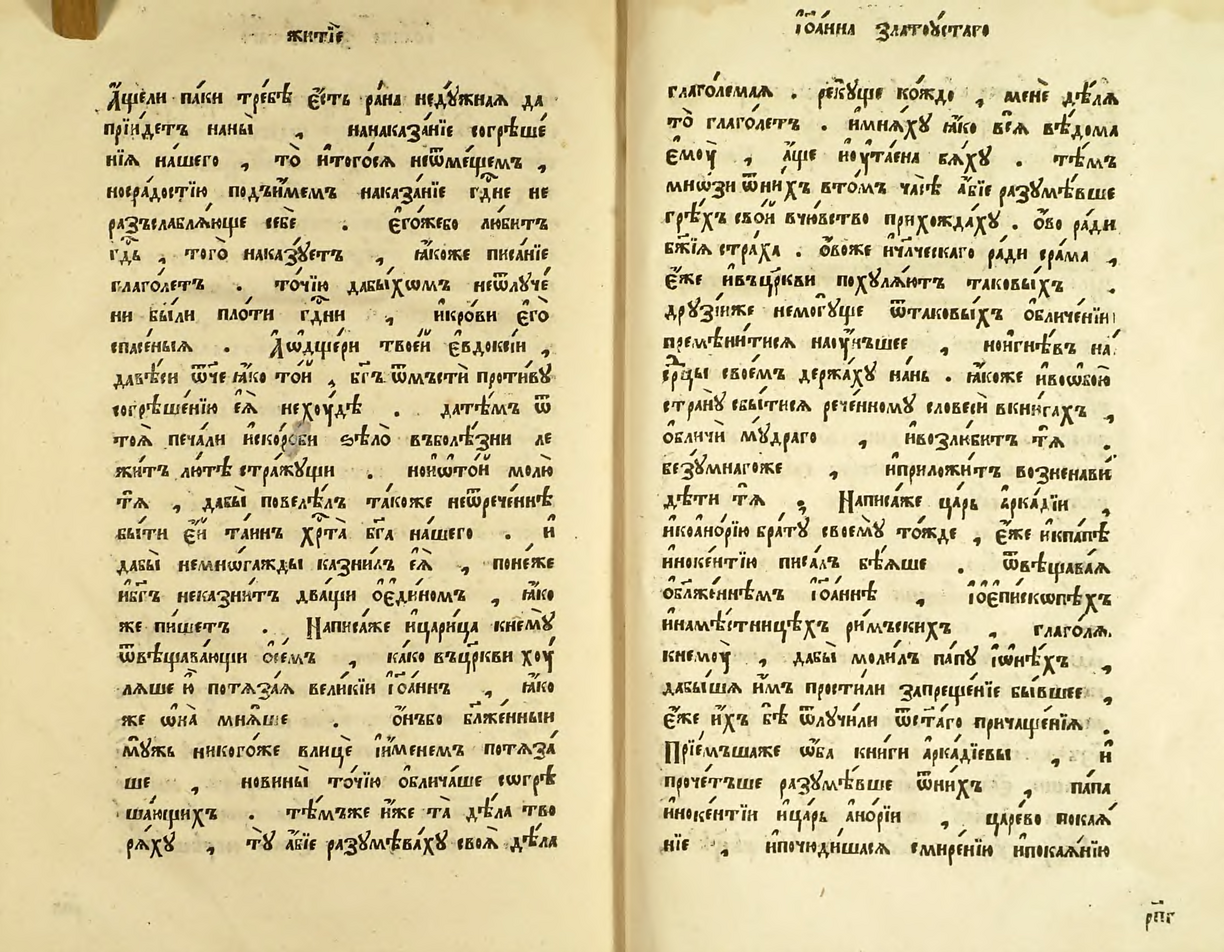 житїе
А҆щели па́ки тре́бѣ є҆́сть ра́на неду́жнаꙗ да
прїи́детъ наны̀ , нанаказа́нїе согрѣше́
нїѧ на́шего , то̀ и҆того́сѧ неѿме́щемъ ,
носра́достїю подъи́мемъ наказа́нїе гд҇не не
разъслаблѧ́юще себѐ . є҆го́жебо любитъ
гд҇ь , того̀ наказꙋетъ , ꙗ҆́коже писа́нїе
глаго́летъ . то́чїю дабы́хомъ неѿлꙋче
ни бы́ли пло́ти гд҇ни , и҆кро́ви є҆го̀
спасе́ныѧ . А҆ѡ҆дще́ри твое́й є҆вдокс́їи ,
да́вѣси ѿче ꙗ҆́ко то́й , бг҃ъ ѿмъстѝ проти́вꙋ
согрѣше́нїю є҆ѧ̀ нехоу́дѣ . дати́мъ ѿ
тоѧ̀ печа́ли и҆ско́рби ѕѣло̀ въболѣ́зни ле
жи́тъ лю́тѣ стра́жꙋщи . нои҆ѡто́й молю̀
тѧ̀ , дабы̀ повелѣ́лъ та́коже неѿрече́ннѣ
бы́ти є҆́й та́инъ хрⷭ҇та̀ бг҃а на́шего . и҆
дабы̀ немно́гажды казни́лъ є҆ѧ̀ , поне́же
и҆бг҃ъ неказни́тъ два́щи ѡ҆є҆ди́номъ , ꙗ҆́ко
же пи́шетъ . Написа́же и҆цари́ца кнемꙋ̀
ѿвѣщава́ющи ѡ҆се́мъ , ка́ко въцр҃кви хоу́
лѧше ю҆̀ потѧза́ѧ вели́кїи і҆ѡа́ннъ , ꙗ҆́ко
же ѡ҆на̀ мнѧ́ше . ѻ҆́нъбо блж҃е́нныи
мꙋ́жь никого́же влицѐ і҆и́менемъ потѧза́
ше , новины̀ то́чїю ѡ҆блича́ше согрѣ
ша́ющихъ . тѣ́мъже и҆́же та̀ дѣ́ла тво
рѧ́хꙋ , тꙋ̀ а҆́бїе разꙋмѣва́хꙋ своѧ̀ дѣ́ла
і҆ѡа́нна златоꙋ́стаго
глаго́лемаѧ . рекꙋ́ще ко́ждо , менѐ дѣ́лѧ
то̀ глаго́летъ . и҆мнѧ́хꙋ ꙗ҆́ко всѧ̀ вѣ́дома
є҆моу̀ , а҆́ще ноу҆та́ена бѧ́хꙋ . тѣ́мъ
мно́зи ѿни́хъ вто́мъ ча́сѣ а҆́бїе разꙋмѣ́вше
грѣ́хъ сво́й вчю́вство прихожда́хꙋ . ѻ҆́во ра́ди
бж҃їѧ стра́ха . ѻ҆́воже и҆чл҃ческаго ра́ди сра́ма ,
є҆́же и҆въцр҃кви похꙋлѧ́ютъ таковы́хъ .
дрꙋзі́иже немогꙋ́ще ѿтаковы́хъ ѡ҆бличе́нїи
премѣни́тисѧ наоу҆́нъшее , нои҆гнѣ́въ на
ср҃дцы своє́мъ держа́хꙋ на́нь . ꙗ҆́коже и҆восо́бою
странꙋ̀ сбы́тисѧ рече́нномꙋ словесѝ вкни́гахъ ,
ѡ҆бличѝ мꙋ́драго , и҆возлю́битъ тѧ̀ .
безꙋ́мнагоже , и҆приложи́тъ возненави́
дѣти тѧ̀ , Написа́же ца́рь а҆рка́дїи ,
и҆коано́рїю бра́тꙋ своемꙋ̀ то́жде , є҆́же и҆кпа́пѣ
и҆ноке́нтїю писа́лъ бѣ́ѧше . ѿвѣщава́ѧ
ѡ҆блж҃е́ннѣмъ і҆ѡа́ннѣ , і҆ѡ҆є҆пи́скопѣхъ
и҆намѣ́стницѣхъ ри́мъскихъ , глаго́лѧ
кнемоу̀ , дабы̀ моли́лъ па́пꙋ і҆ѡ҆ни́хъ ,
дабы́шѧ и҆̀мъ прости́ли запреще́нїе бы́вшее ,
є҆́же и҆́хъ бѣ̀ ѿлꙋчи́ли ѿст҃а́го причаще́нїѧ .
Прїе́мъшаже ѻ҆́ба кни́ги а҆рка́дїевы , и҆
проче́тъше разꙋмѣ́вше ѿни́хъ , па́па
и҆ноке́нтїи и҆ца́рь а҆но́рїи , ца́рево покаѧ́
нїе , и҆почюди́шасѧ смире́нїю и҆покаѧ́нїю
рпг